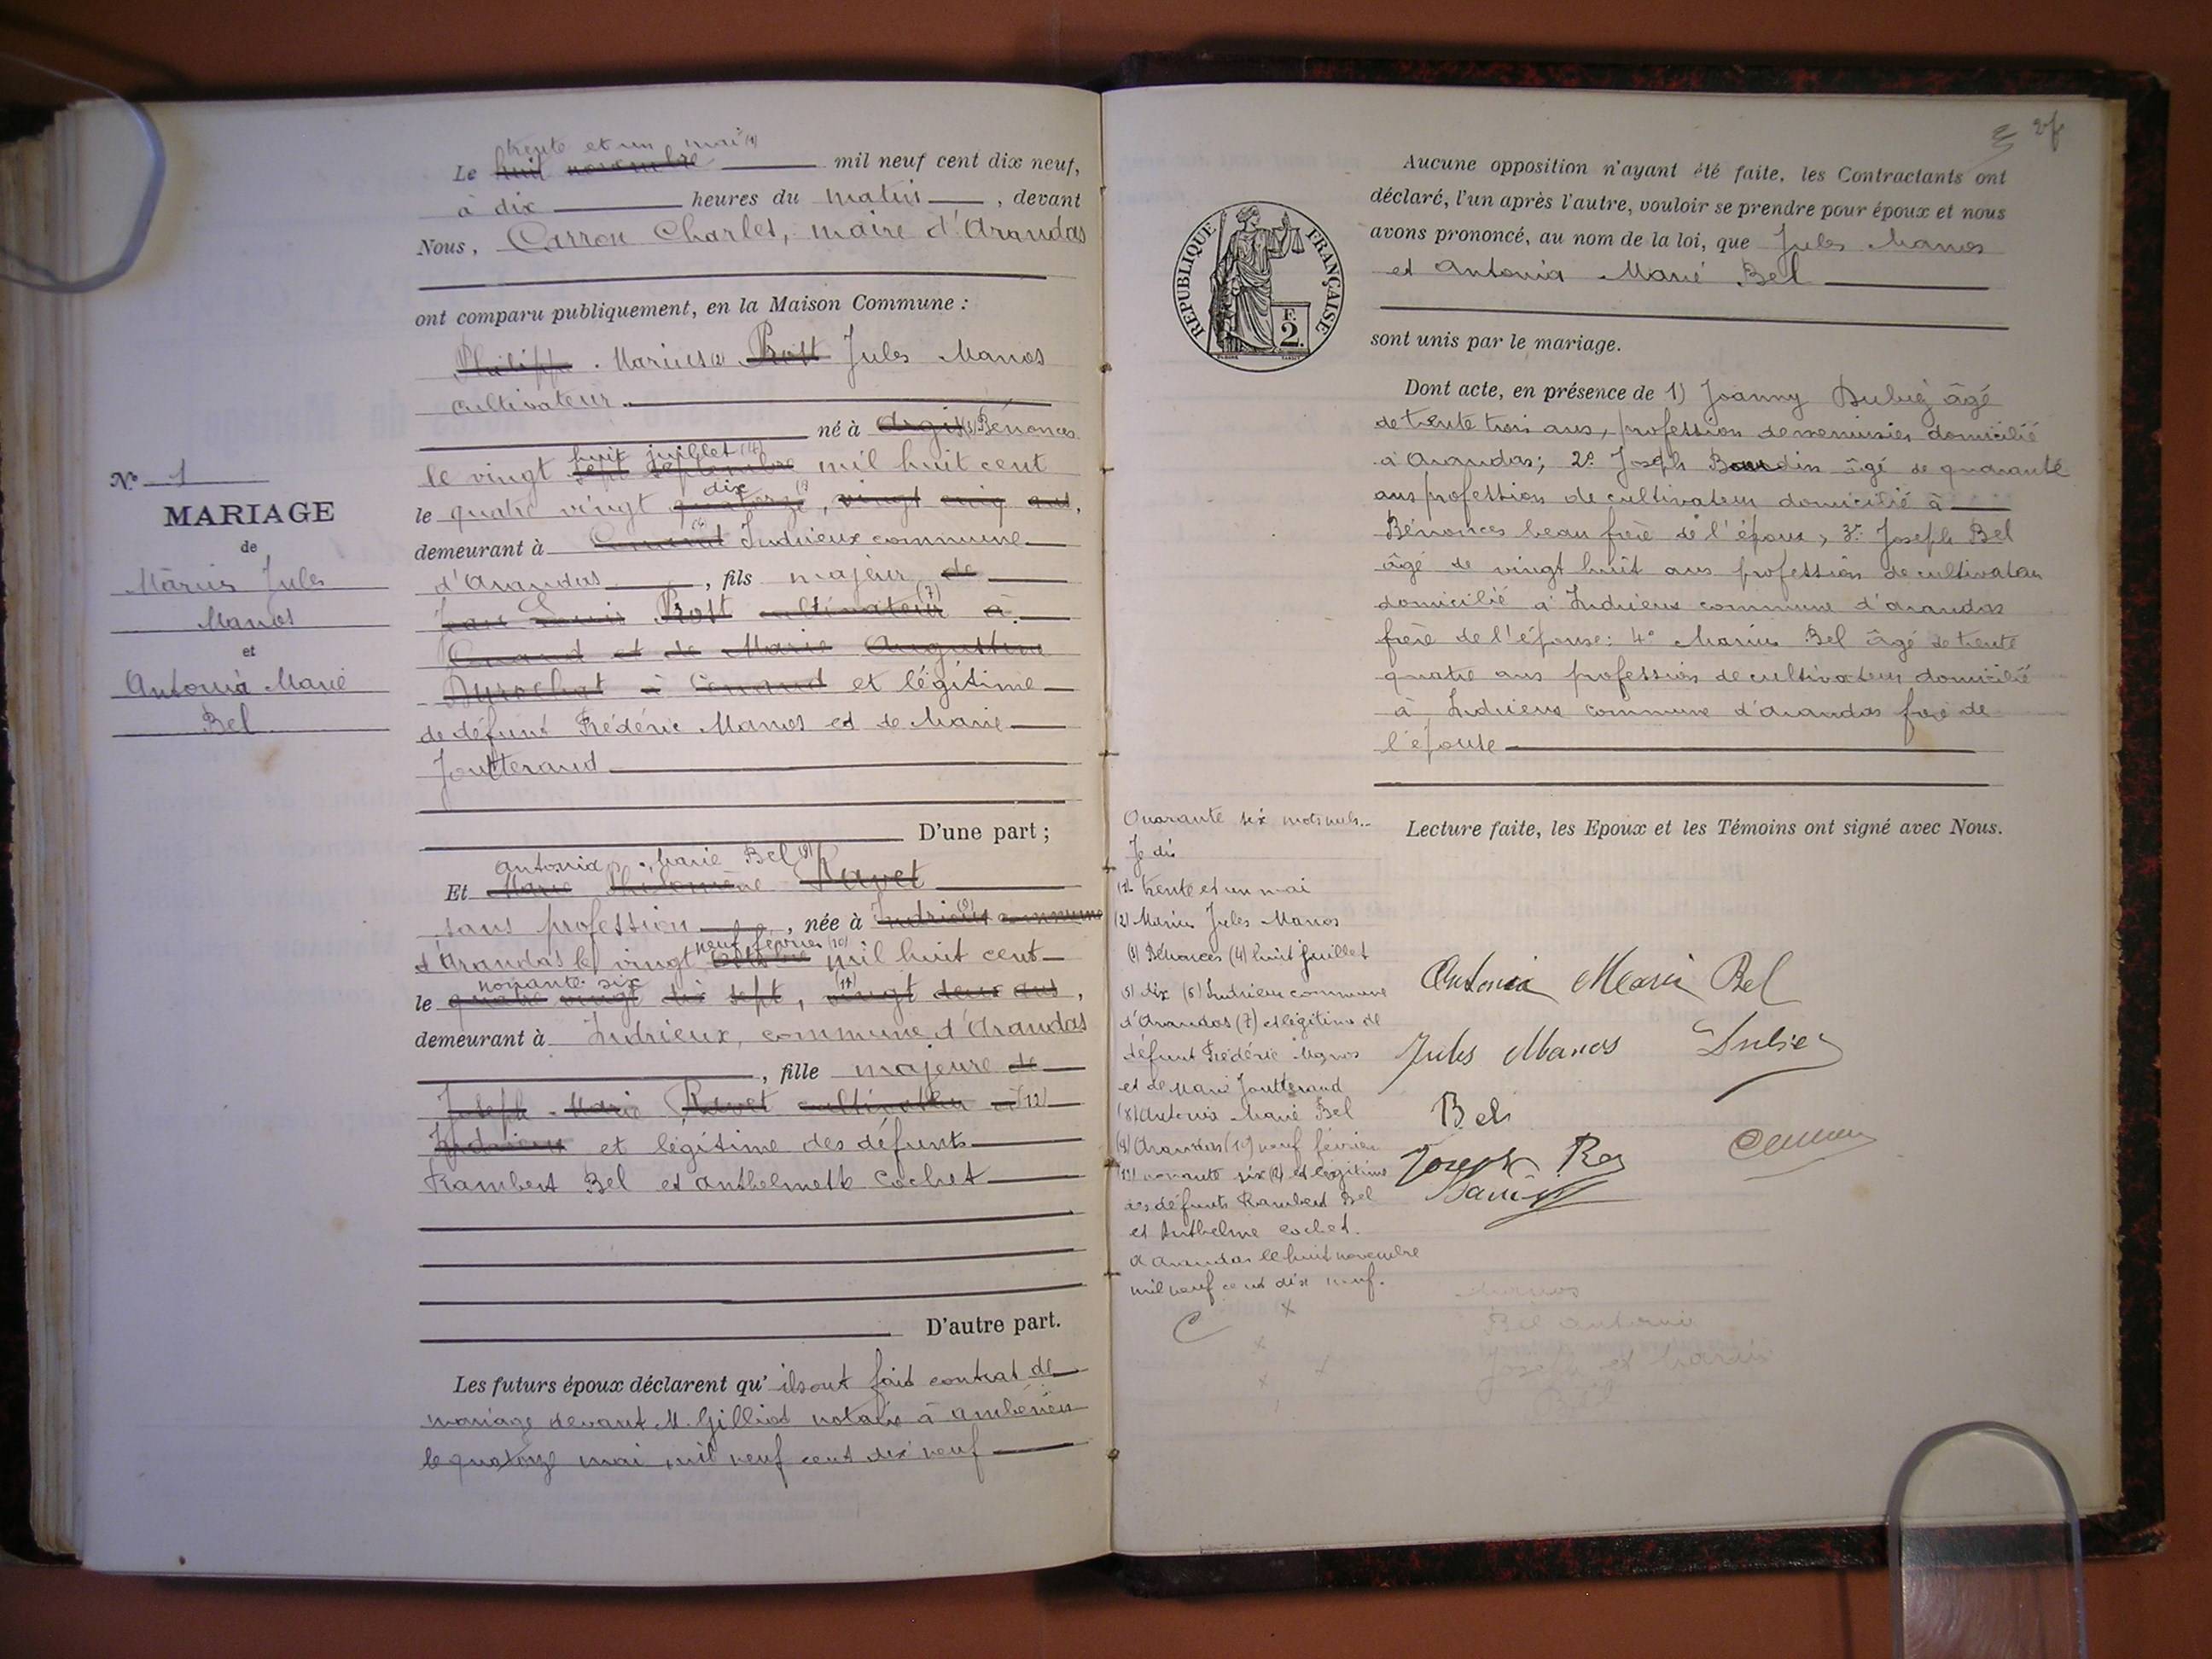 trente et un mai (1)
Le huit novembre mil neuf cent dix neuf,
à dix heures du matin, devant
Nous, Carron Charles, maire d'Arandas
ont comparu publiquement, en la Maison Commune :
Philippe Marius (2) Prost Jules Manos
cultivateur
né à Argis (3) Bénonces
huit juillet (4)
le vingt sept septembre mil huit cent
dix
le quatre vingt quatorze, vingt cinq ans,
demeurant à Conand Indrieux commune
d'Arandas, fils majeur de
Jean Louis Prost cultivateur (7) à
Conand et de Marie Augustine
à Conand et légitime
de défunt Frédéric Manos et de Marie
Joutterand
D'une part ;
Antonia Marie Bel (8)
Et Marie Philomène Ravet
sans profession, née à Indrieux (9) commune
neuf février (10)
d'Arandas le vingt octobre mil huit cent
nonante six
le quatre vingt dix sept, (11) vingt deux ans,
demeurant à Indrieux, commune d'Arandas
, fille majeure de
Joseph Marie Ravet cultivateur à (12)
Indrieux et légitime des défunts
Rambert Bel et Anthelmette Cochet
D'autre part.
Les futurs époux déclarent qu' ils ont fait contrat de
mariage devant M. Gilliod notaire à Ambérieu
le quatorze mai mil neuf cent dix neuf
N° 1
MARIAGE
de
Marius Jules
Manos
et
Antonia Marie
Bel
RÉPUBLIQUE FRANÇAISE
F.
2.
Aucune opposition n'ayant été faite, les Contractants ont
déclaré, l'un après l'autre, vouloir se prendre pour époux et nous
avons prononcé, au nom de la loi, que Jules Manos
et Antonia Marie Bel
sont unis par le mariage.
Dont acte, en présence de 1) Joanny Dubiez âgé
de trente trois ans, profession de menuisier domicilié
à Arandas; 2° Joseph Baudin âgé de quarante
ans profession de cultivateur domicilié à
Bénonces beau frère de l'époux, 3° Joseph Bel
âgé de vingt huit ans profession de cultivateur
domicilié à Indrieux commune d'Arandas
frère de l'épouse: 4° Marius Bel âgé de trente
quatre ans profession de cultivateur domicilié
à Indrieux commune d'Arandas frère de
l'épouse
Lecture faite, les Epoux et les Témoins ont signé avec Nous.
Quarante six mots nuls.
Je dis
(1) trente et un mai
(2) Marius Jules Manos
(3) Bénonces (4) huit juillet
(5) dix (6) Indrieux commune
d'Arandas (7) et légitime de
défunt Frédéric Manos
et de Marie Joutterand
(8) Antonia Marie Bel
(9) Arandas (10) neuf février
(11) nonante six (12) et légitime
des défunts Rambert Bel
et Anthelme Cochet.
à Arandas le huit novembre
mil neuf cent dix neuf.
Antonia Marie Bel
Jules Manos Dubiez
Bel
Joseph
Manos
Bel Antonia
Joseph et Marius
Bel